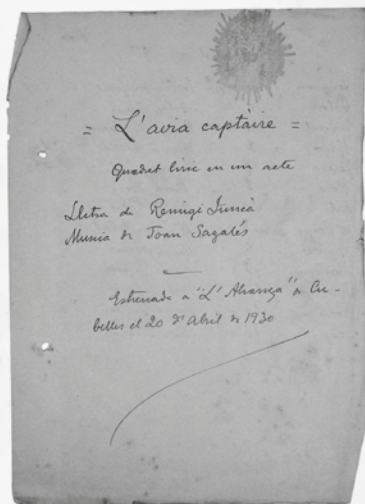 = L'avia captaire =
Quadret líric en un acte
Lletra de Remigi Juncà
Musica de Joan Sagalés
Estrenada a "L'Aliança" de Cu-
belles el 20 d'Abril de 1930